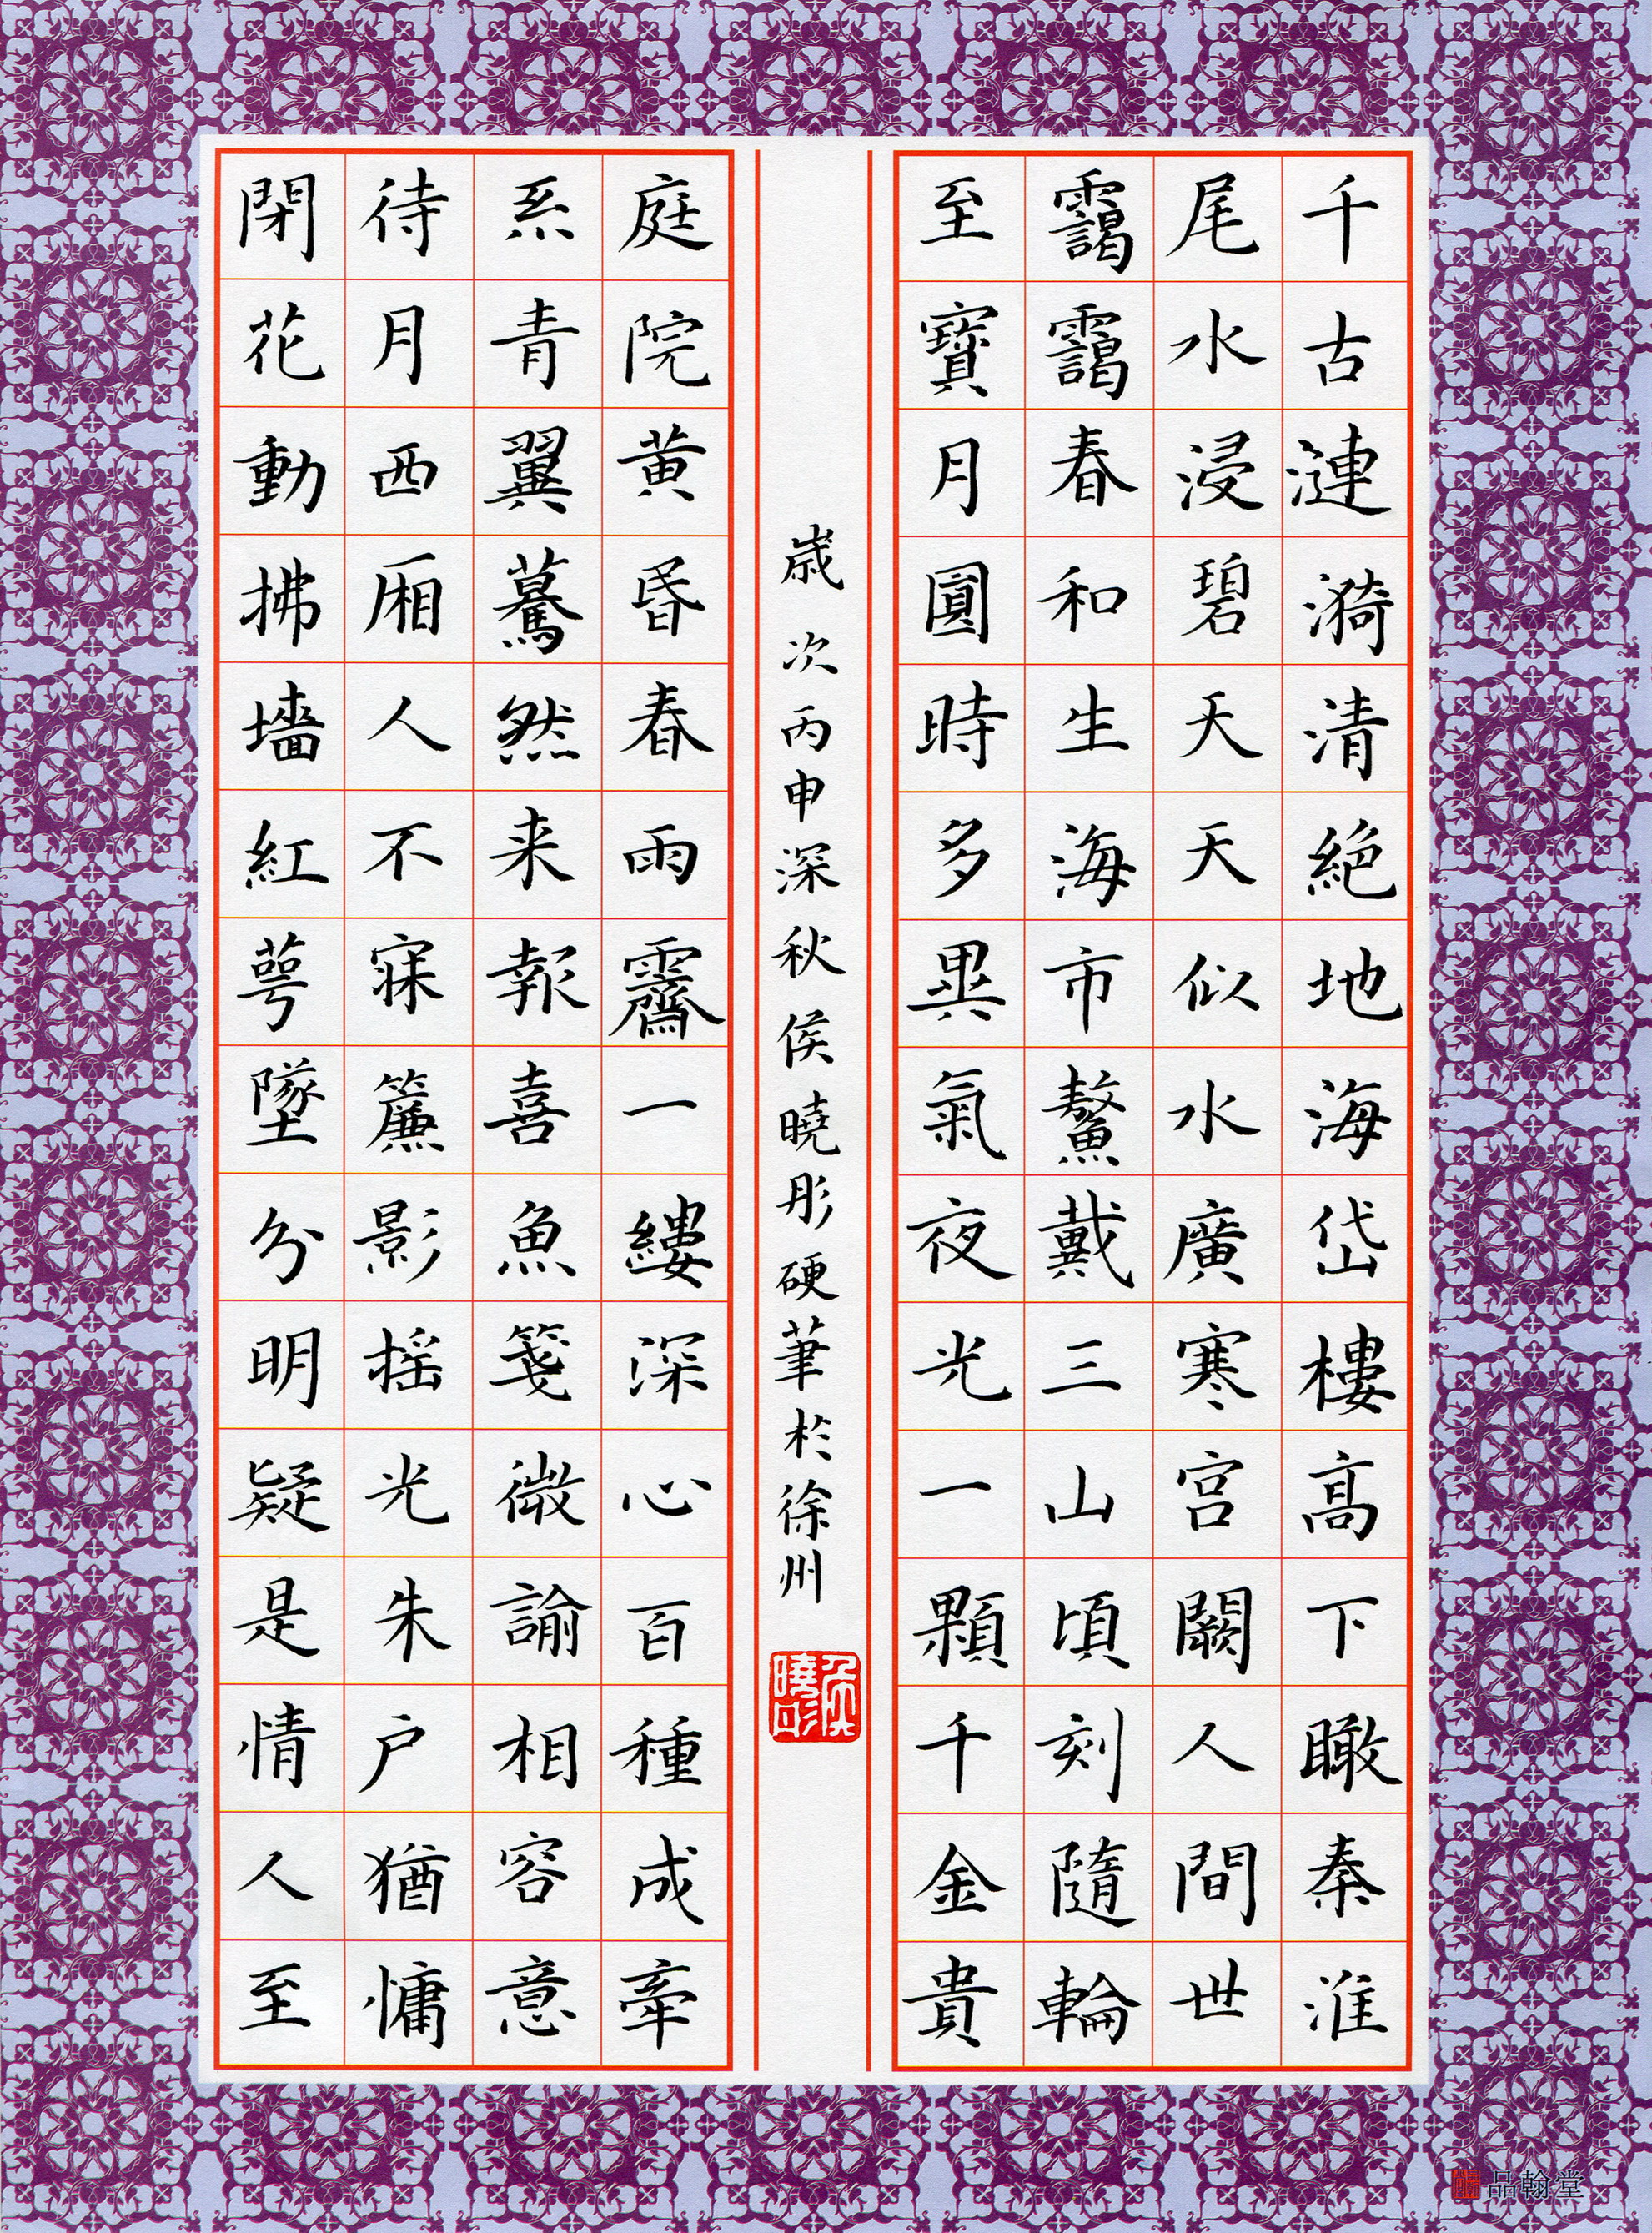 千古漣漪清絕地海岱樓高下瞰秦淮
尾水浸碧天天似水廣寒宮闕人間世
靄靄春和生海市鰲戴三山頃刻隨輪
至寶月圓時多異氣夜光一顆千金貴
歲次丙申深秋侯曉彤硬筆於徐州
侯曉彤
庭院黄昏春雨霽一縷深心百種成牽
系青翼驀然来報喜魚箋微諭相容意
待月西厢人不寐簾影摇光朱户猶慵
閉花動拂墻紅萼墜分明疑是情人至
品翰堂